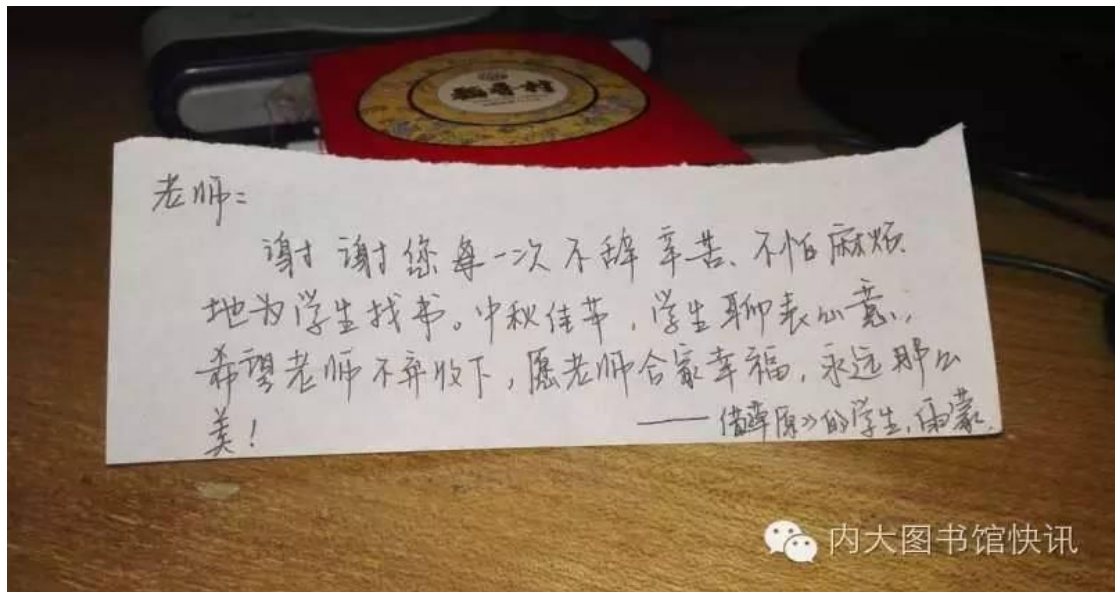 稻香村
老师：
谢谢您每一次不辞辛苦、不怕麻烦
地为学生找书。中秋佳节，学生聊表心意，
希望老师不弃收下，愿老师合家幸福，永远那么
美！
——借《草原》的学生，雨蒙
内大图书馆快讯